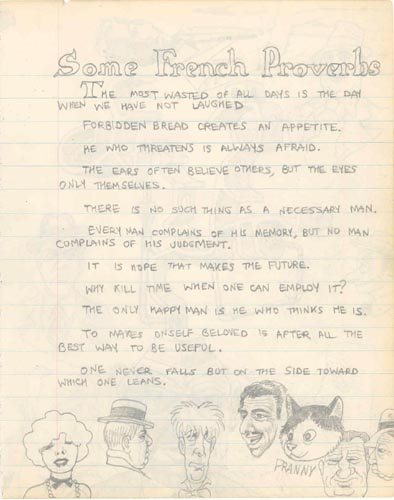 Some French Proverbs
THE MOST WASTED OF ALL DAYS IS THE DAY
WHEN WE HAVE NOT LAUGHED
FORBIDDEN BREAD CREATES AN APPETITE.
HE WHO THREATENS IS ALWAYS AFRAID.
THE EARS OFTEN BELIEVE OTHERS, BUT THE EYES
ONLY THEMSELVES.
THERE IS NO SUCH THING AS A NECESSARY MAN.
EVERY MAN COMPLAINS OF HIS MEMORY, BUT NO MAN
COMPLAINS OF HIS JUDGMENT.
IT IS HOPE THAT MAKES THE FUTURE.
WHY KILL TIME WHEN ONE CAN EMPLOY IT?
THE ONLY HAPPY MAN IS HE WHO THINKS HE IS.
TO MAKES ONSELF BELOVED IS AFTER ALL THE
BEST WAY TO BE USEFUL.
ONE NEVER FALLS BUT ON THE SIDE TOWARD
WHICH ONE LEANS.
FRANNY